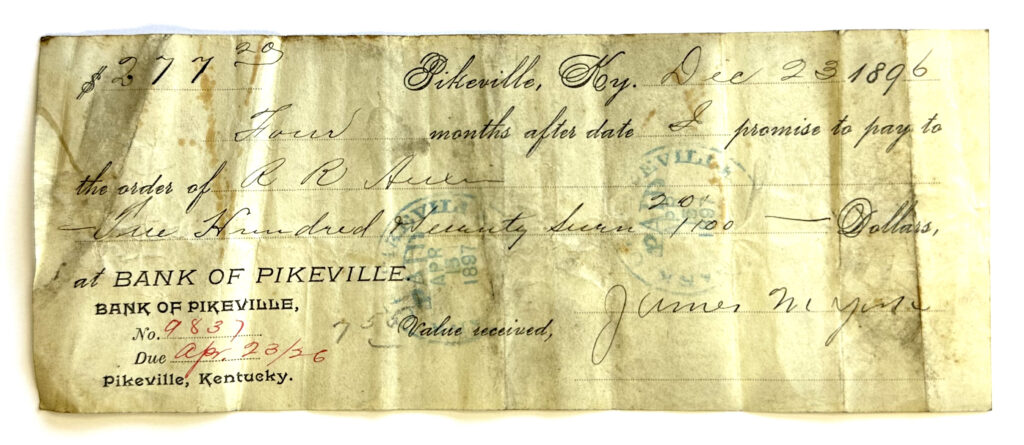 $ 277 20 Pikeville, Ky. Dec 23 1896
Four months after date I promise to pay to
the order of R R
Two Hundred & Seventy 20/100 Dollars,
at BANK OF PIKEVILLE.
BANK OF PIKEVILLE,
No. 9837
Due Apr. 23/26
Pikeville, Kentucky.
7 5 Value received,
James M York
PIKEVILLE
PAID
APR
1897
PIKEVILLE
PAID
APR
189